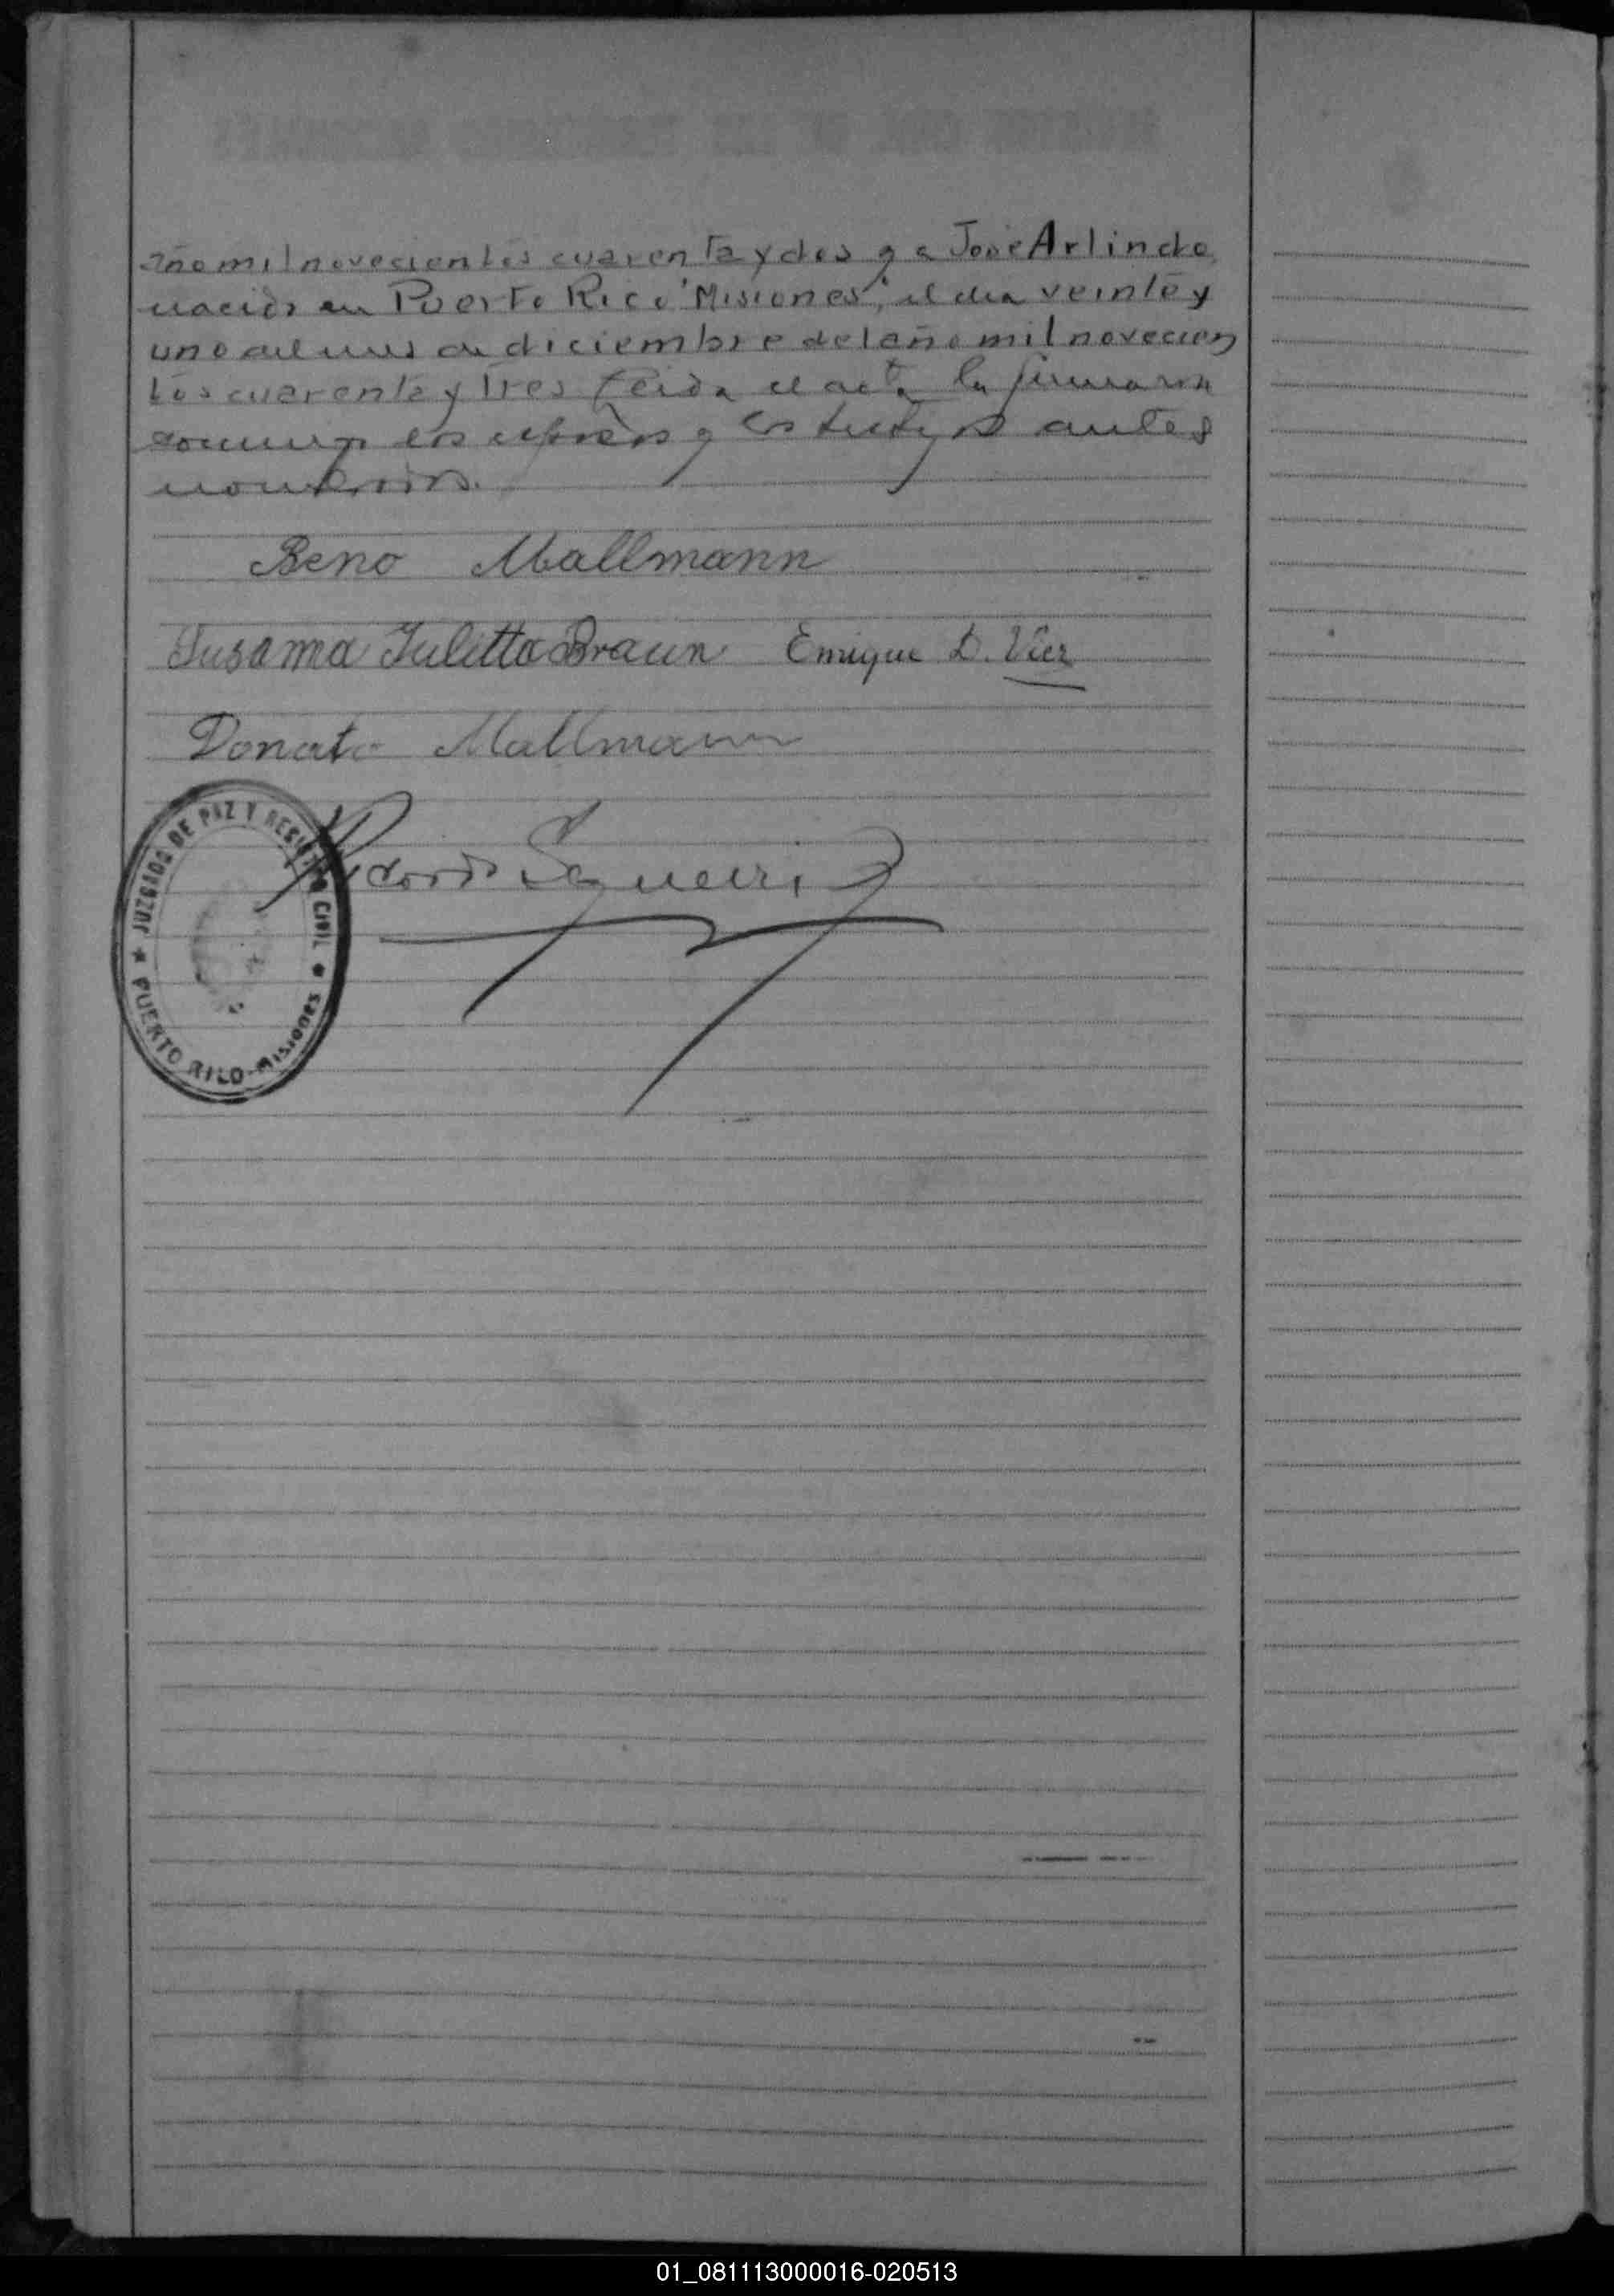 año mil novecientos cuarenta y dos y a José Arlindo,
nacido en Puerto Rico "Misiones", el dia veinte y
uno del mes de diciembre del año mil novecien
tos cuarenta y tres Leida el acta la firmaron
conmigo los esposos y los testigos antes
nombrados.
Beno Mallmann
Susanna Julitta Braun Enrique D. Vier
Donato Mallmann
Ricardo Sequeira
JUZGADO DE PAZ Y REGISTRO CIVIL
PUERTO RICO - MISIONES
01_081113000016-020513